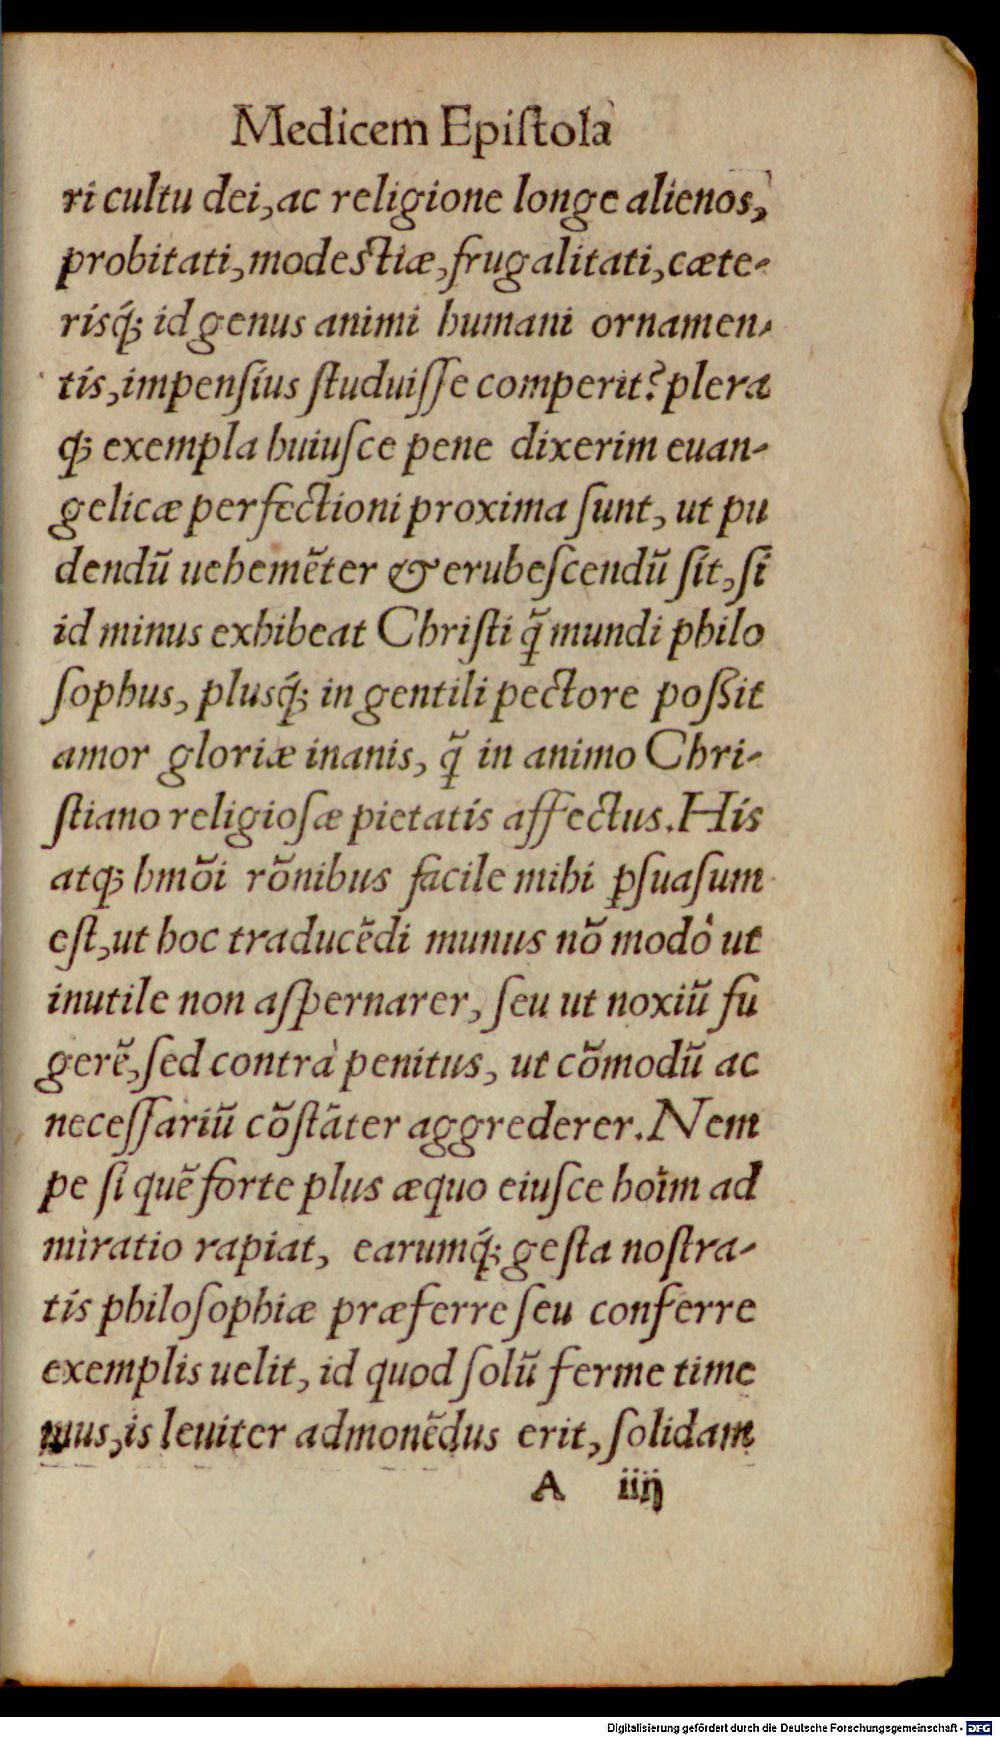 Medicem Epiſtola
ri cultu dei, ac religione longe alienos,
probitati, modeſtiæ, frugalitati, cæte-
risq́; id genus animi humani ornamen-
tis, impenſius ſtuduiſſe comperit? plera
q; exempla huiuſce pene dixerim euan-
gelicæ perfectioni proxima ſunt, ut pu
dendũ uehemẽter & erubeſcendũ ſit, ſi
id minus exhibeat Chriſti q̃ mundi philo
ſophus, plusq́; in gentili pectore poßit
amor gloriæ inanis, q̃ in animo Chri-
ſtiano religioſæ pietatis affectus. His
atq; hmõi rõnibus facile mihi ꝑſuaſum
eſt, ut hoc traducẽdi munus nõ modò ut
inutile non aſpernarer, ſeu ut noxiũ fu
gerẽ, ſed contrà penitus, ut cõmodũ ac
neceſſariũ cõſtãter aggrederer. Nem
pe ſi quẽ forte plus æquo eiuſce hoĩm ad
miratio rapiat, earumq́; geſta noſtra-
tis philoſophiæ præferre ſeu conferre
exemplis uelit, id quod ſolũ ferme time
mus, is leuiter admonẽdus erit, ſolidam
A iiij
Digitalisierung gefördert durch die Deutsche Forschungsgemeinschaft - DFG